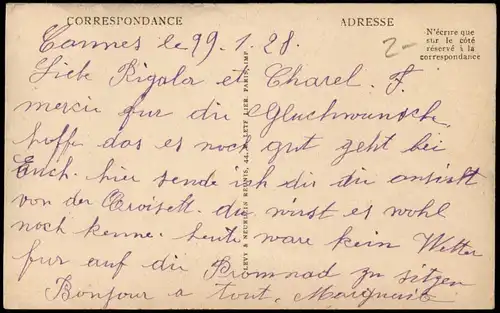 CORRESPONDANCE
ADRESSE
N'écrire que
sur le côté
réservé à la
correspondance
2-
Cannes le 29.1.28.
Lieb Rigala et Charel. F.
mercie fur die Gluchwunsche,
hoffe das es noch gut geht bei
Euch. hier sende ich dir die ansicht
von der Croisett. du wirst es wohl
noch kenne. heute ware kein Wetter
fur auf die Promnad zu sitzen
Bonjour a tout, Marguerit
LEVY & NEURDEIN REUNIS, 44, LETELLIER, PARIS. IMP.